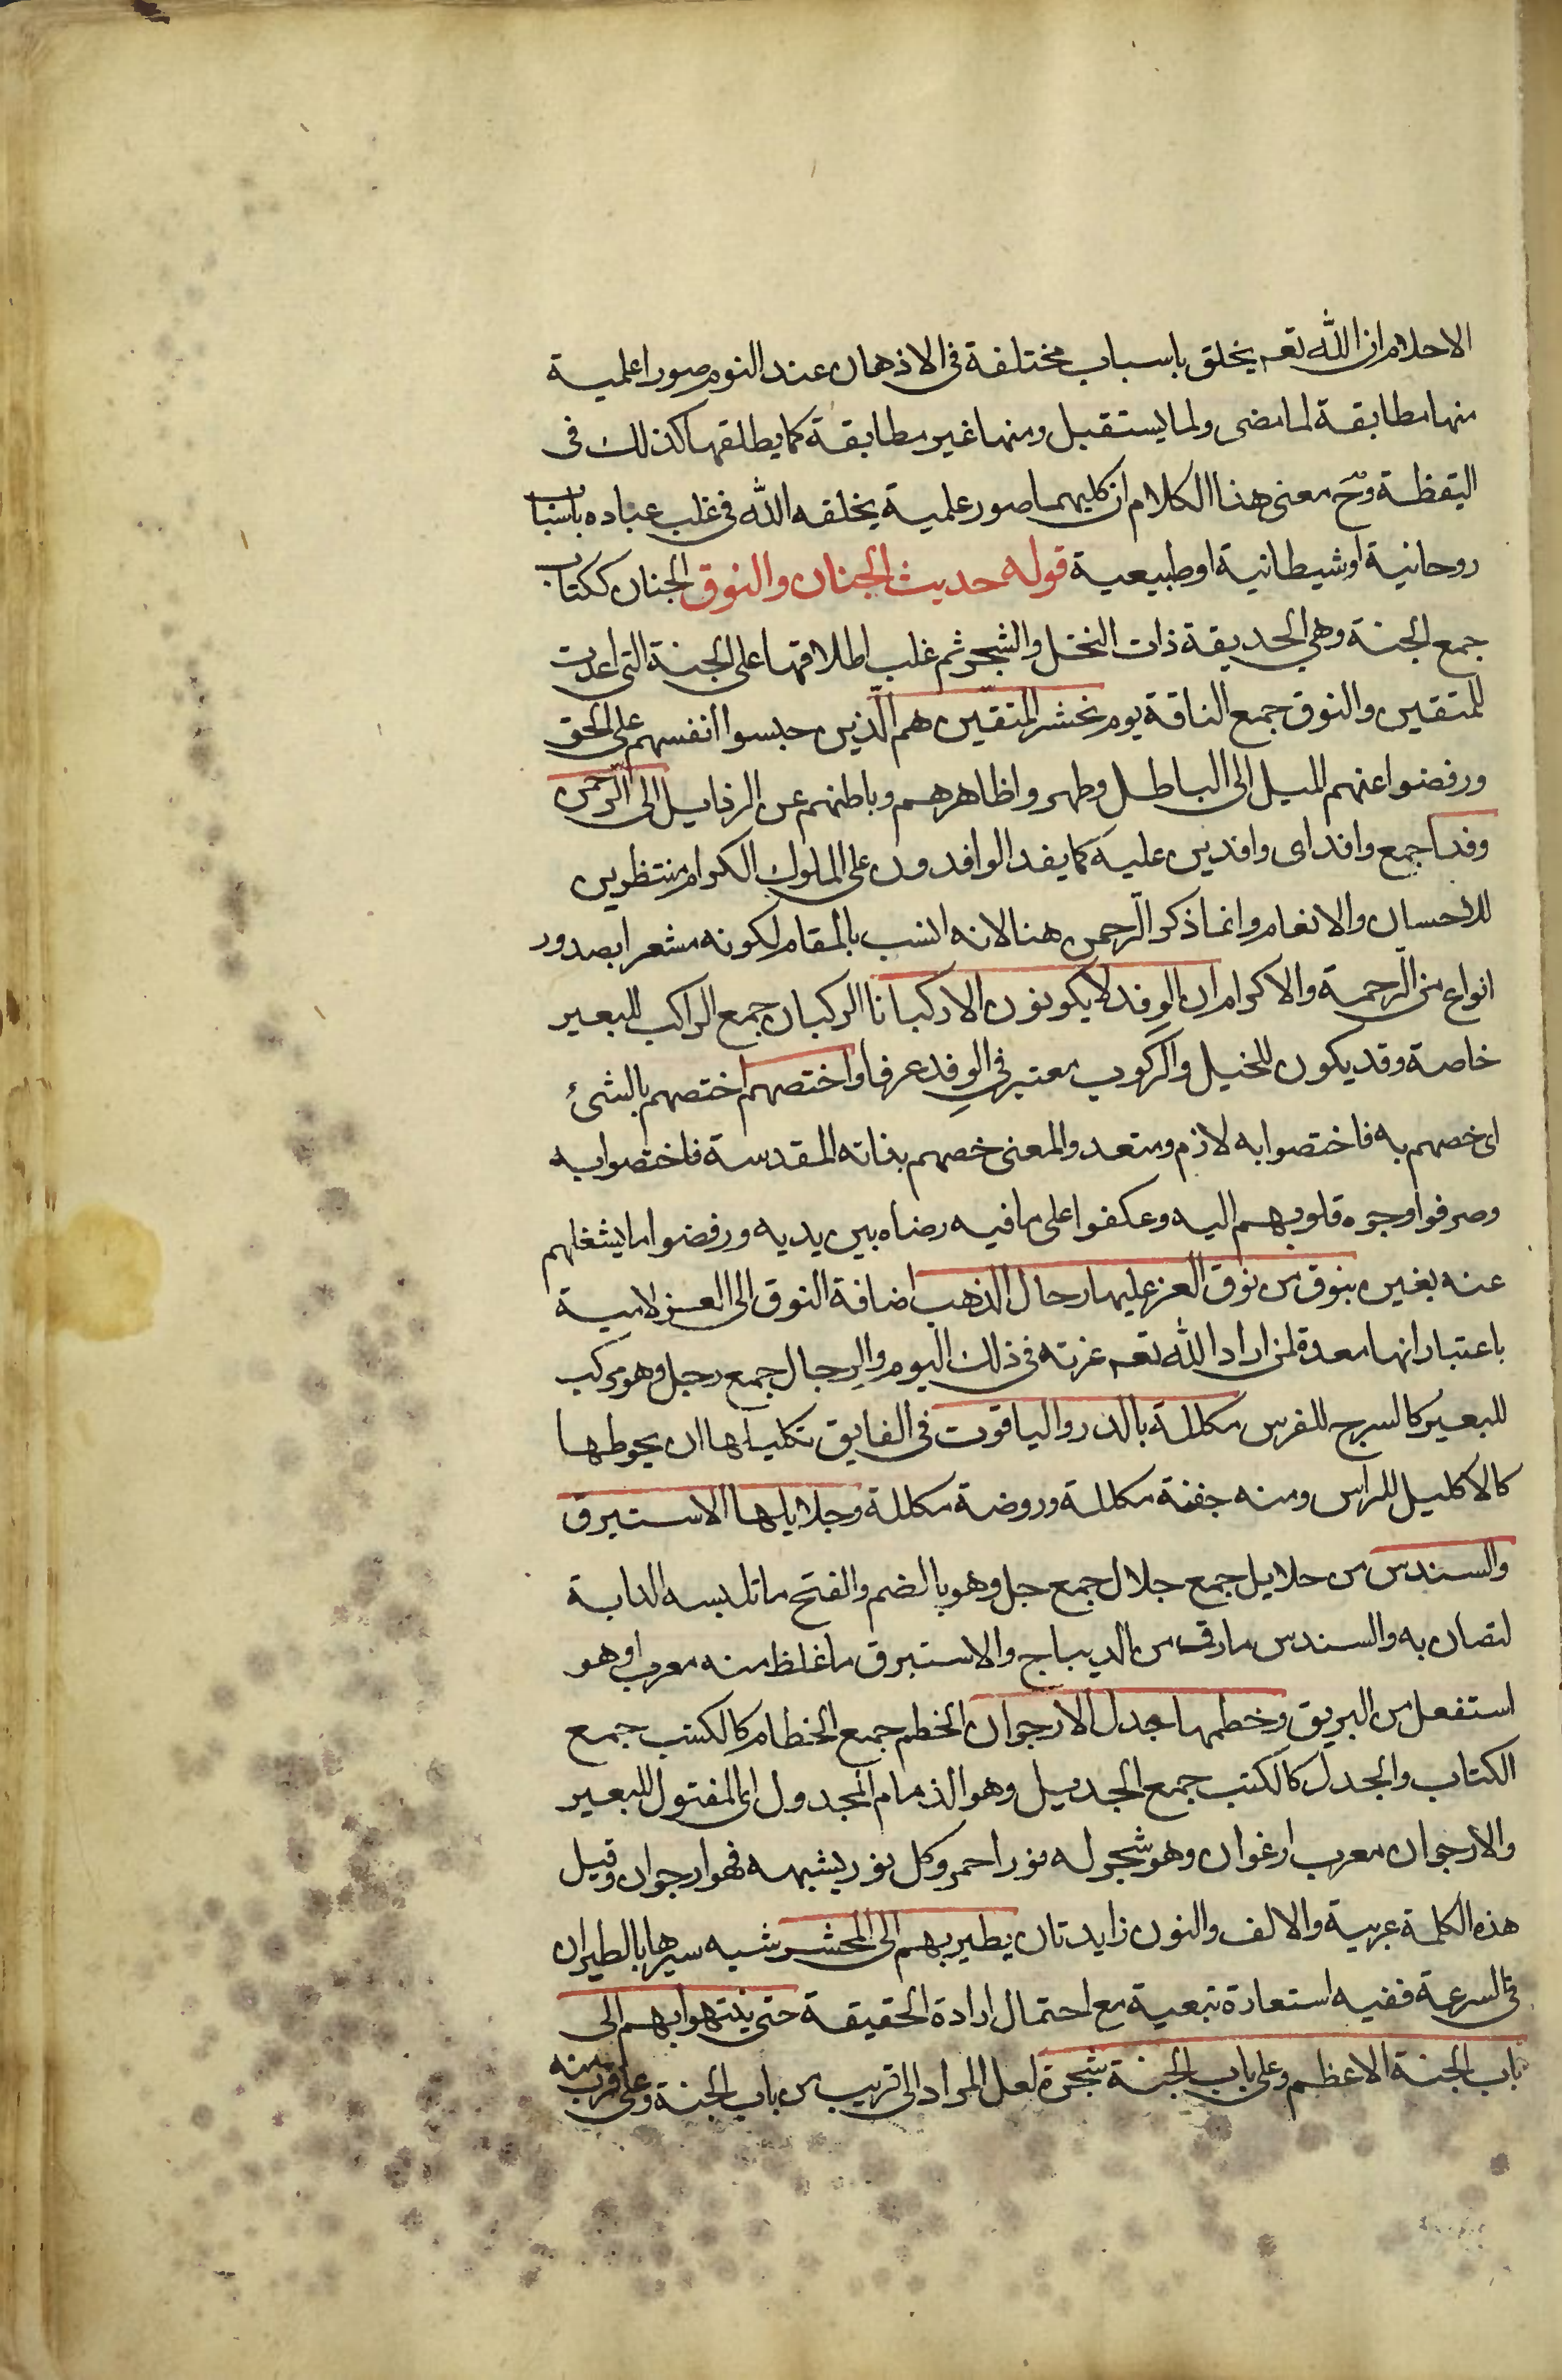 الاحلام ان الله تعـ يخلق باسباب مختلفة فى الاذهان عند النوم صورا علمية
منها مطابقة لما مضى ولما يستقبل ومنها غير مطابقة كما يطلقها كذلك فى
اليقظة وح معنى هذا الكلام ان كليهما صور علمية يخلقه الله فى غلب عباده باسباب
روحانية او شيطانية او طبيعية قوله حديث الجنان والنوق الجنان ككتاب
جمع الجنة وهي الحديقة ذات النخل والشجر ثم غلب اطلاقها على الجنة التى اعدت
للمتقين والنوق جمع الناقة يوم نحشر المتقين هم الّذين حبسوا انفسهم على الحق
ورفضوا عنهم الميل الى الباطل وطهروا ظاهرهم وباطنهم عن الرذايل الى الرحمن
وفدا جمع وافد اى وافدين عليه كما يفد الوافدون على الملوك الكرام منتظرين
للاحسان والانعام وانما ذكر الرحمن هنا لانه انسب بالمقام لكونه مشعرا بصدور
انواع من الرحمة والاكرام ان الوفد لا يكونون الا ركبانا الركبان جمع الراكب للبعير
خاصة وقد يكون للخيل والركوب معتبر في الوفد عرفا واختصهم اختصهم بالشئ
اى خصهم به فاختصوا به لازم ومتعد والمعنى خصهم بذاته المقدسة فاختصوا به
وصرفوا وجوه قلوبهم اليه وعكفوا على ما فيه رضاه بين يديه ورفضوا ما يشغلهم
عنه بغيره بنوق من نوق العز عليها رحال الذهب اضافة النوق الى العز لامية
باعتبار انها معدة لمن اراد الله تعـ عزته فى ذلك اليوم والرحال جمع رحل وهو مركب
للبعير كالسرج للفرس مكللة بالدر والياقوت فى الفايق تكليلها ان يحوطها
كالاكليل للراس ومنه جفنة مكللة وروضة مكللة وجلايلها الاستبرق
والسندس من جلايل جمع جلال جمع جل وهو بالضم والفتح ما تلبسه الدابة
لتصان به والسندس مارق من الديباج والاستبرق ما غلظ منه معرب او هو
استفعل من البريق وخطمها جدل الارجوان الخطم جمع الخطام كالكتب جمع
الكتاب والجدل كالكتب جمع الجديل وهو الذمام المجدول اى المفتول للبعير
والارجوان معرب ارغوان وهو شجر له نور احمر وكل نور يشبهه فهو ارجوان وقيل
هذه الكلمة عربية والالف والنون زايدتان يطير بهم الى المحشر شبه سيرها بالطيران
فى السرعة ففيه استعارة تبعية مع احتمال ارادة الحقيقة حتى ينتهوا بهم الى
باب الجنة الاعظم وعلى باب الجنة شجرة لعل المراد الى قريب من باب الجنة وعلى قرب منه